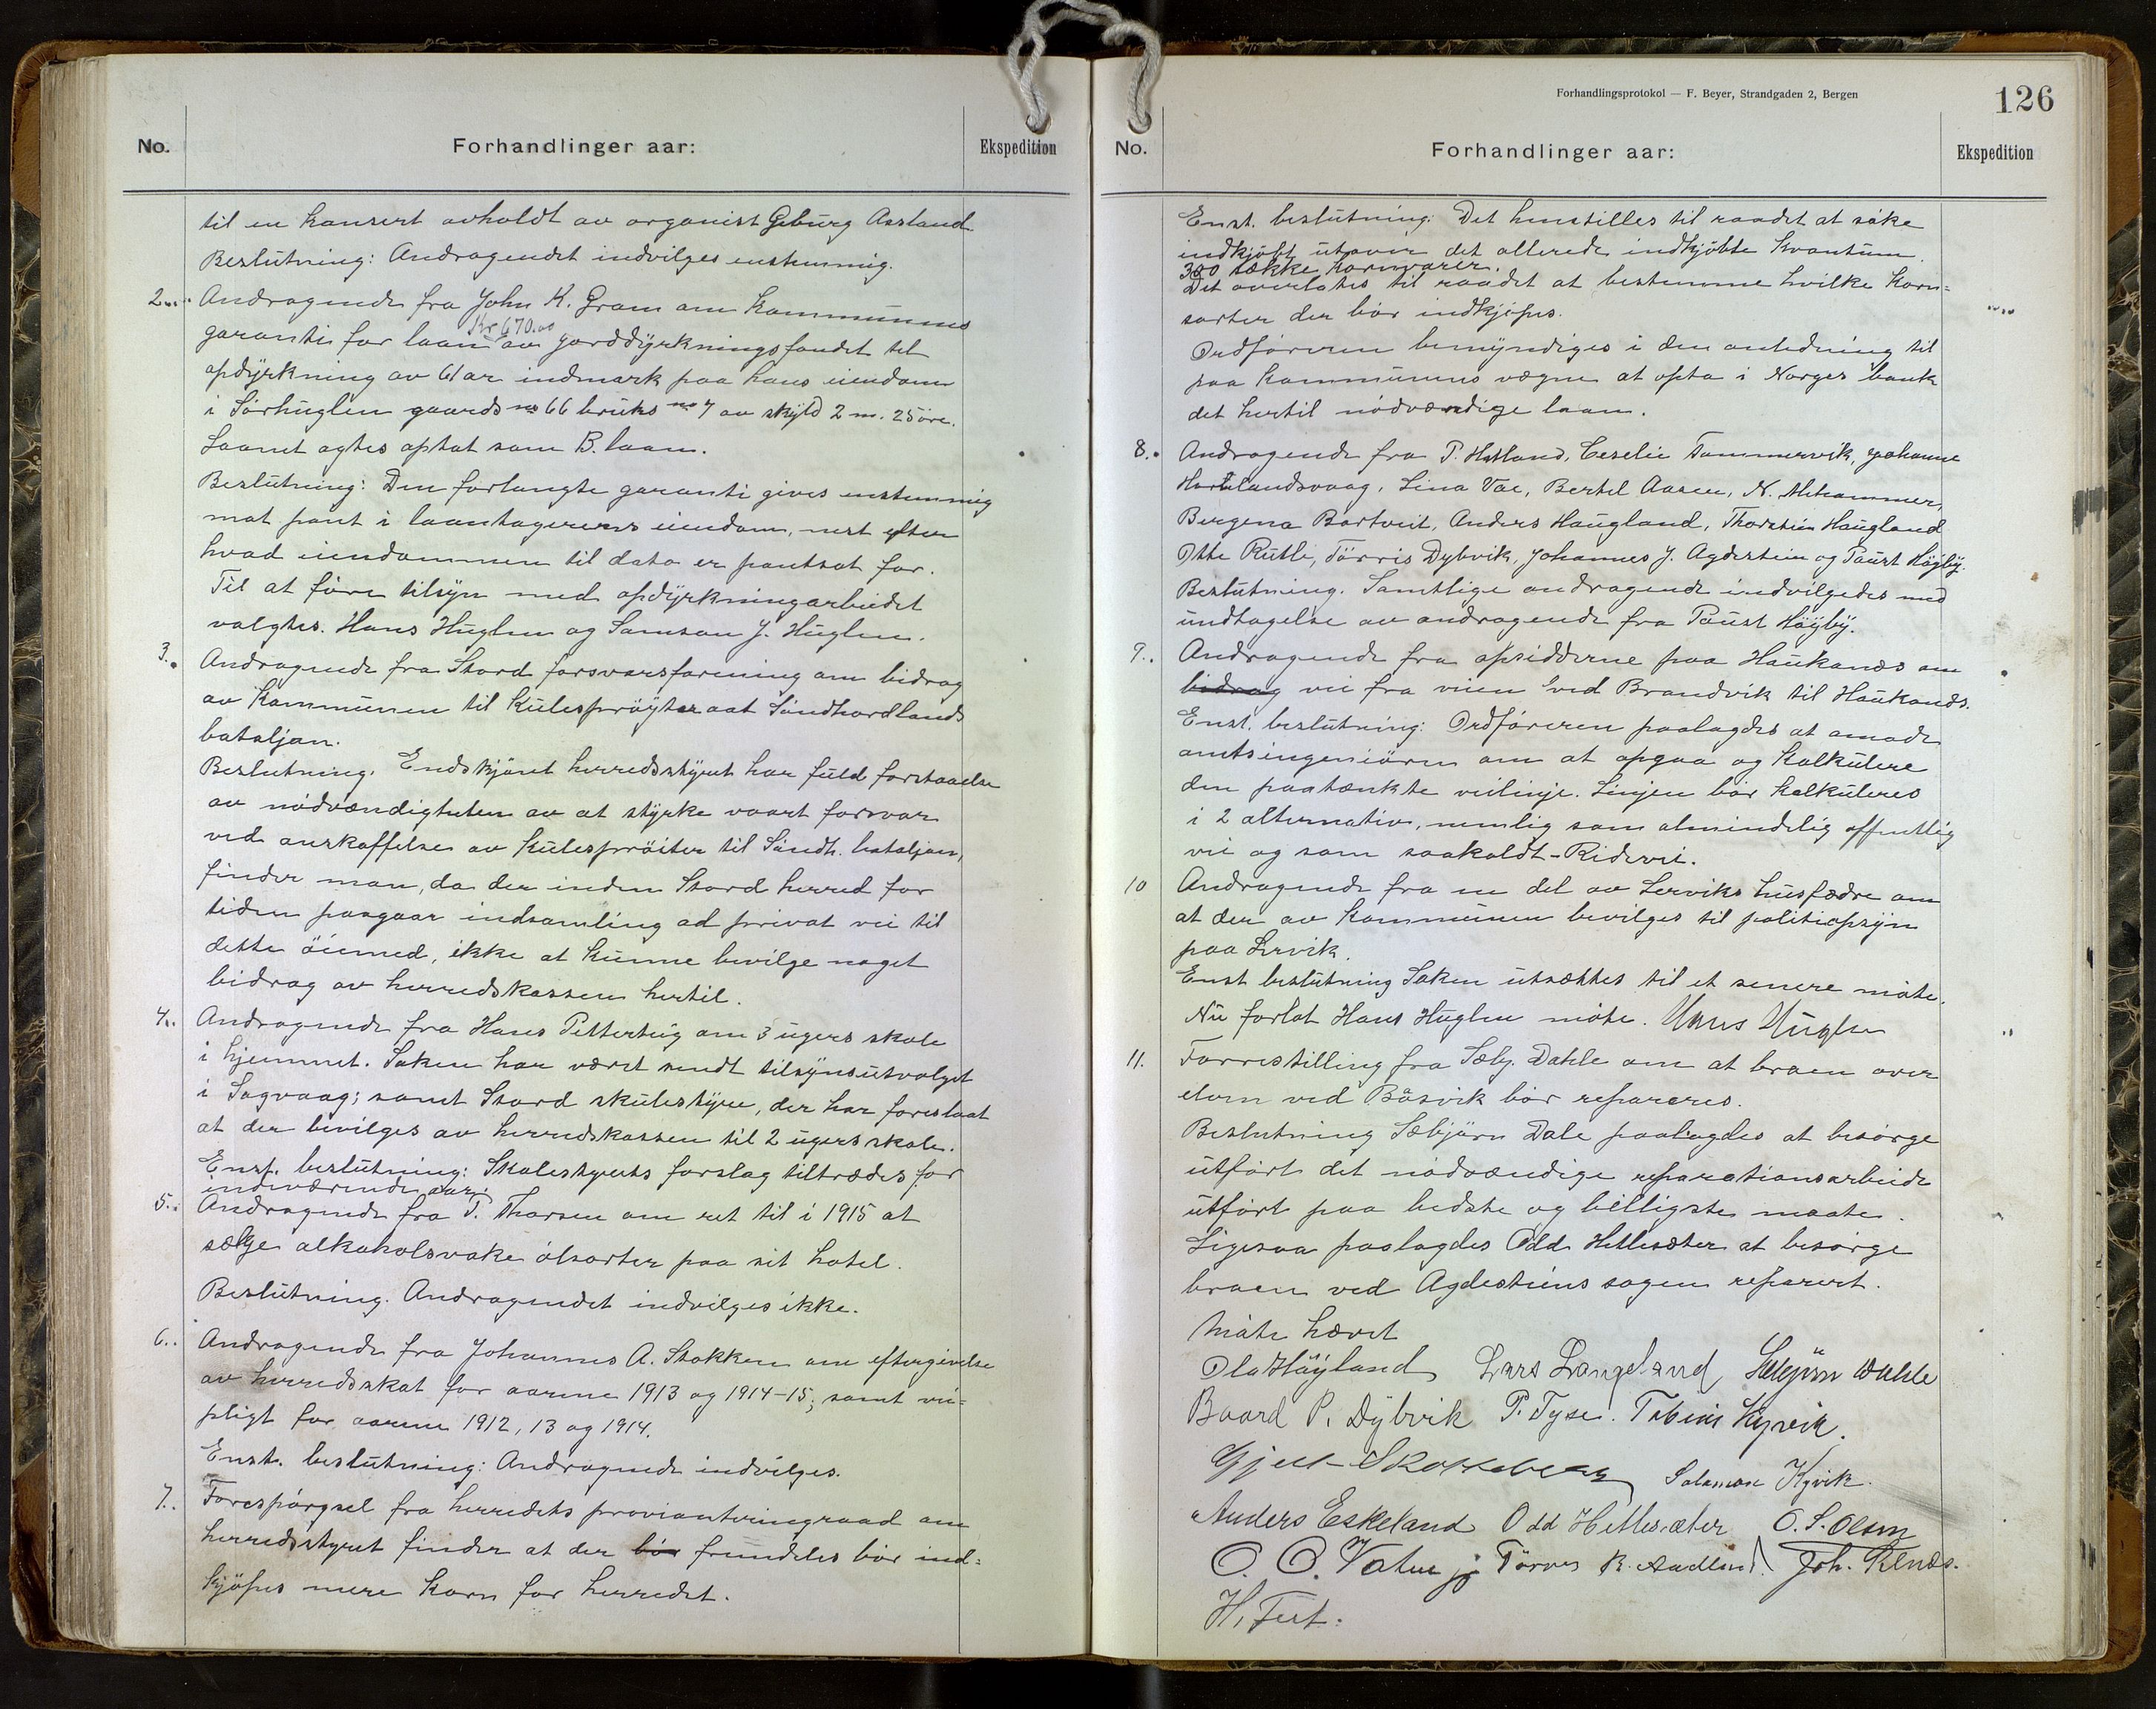 No.
Forhandlinger aar:
Ekspedition
til en konsert avholdt av organist Geburg Aasland
Beslutning: Andragendet indvilges enstemmig.
2. Andragende fra John K. Gram om kommunens
Kr 670.00
garanti for laan av jorddyrkningsfondet til
opdyrkning av 61 ar indmark paa hans eiendom
i Sørhuglen gaards no 66 bruks no 7 av skyld 2 m. 25 øre.
Laanet agtes optat som B. laan.
Beslutning: Den forlangte garanti gives enstemmig
mot pant i laantagerens eiendom, nest efter
hvad eiendommen til dato er pantsat for.
Til at føre tilsyn med opdyrkningarbeidet
valgtes. Hans Huglen og Samson J. Huglen.
3. Andragende fra Stord forsvarsforening om bidrag
av kommunen til kulesprøyter aat Søndhordlands
bataljon.
Beslutning. Endskjønt herredsstyret har fuld forstaaelse
av nødvændigheten av at styrke vaart forsvar
ved anskaffelse av kulesprøiter til Søndh. bataljon,
finder man, da der inden Stord herred for
tiden paagaar indsamling ad privat vei til
dette øiemed, ikke at kunne bevilge noget
bidrag av herredskassen hertil.
4. Andragende fra Hans Petterteig om 3 ugers skole
i hjemmet. Saken har været sendt tilsynsutvalget
i Sagvaag; samt Stord skulestyre, der har foreslaat
at der bevilges av herredskassen til 2 ugers skole.
Enst. beslutning: Skolestyrets forslag tiltrædes for
indeværende aar.
5. Andragende fra T. Thorsen om ret til i 1915 at
sælge alkoholsvake ølsorter paa sit hotel.
Beslutning. Andragendet indvilges ikke.
6. Andragende fra Johannes A. Stokken om eftergivelse
av herredsskat for aarene 1913 og 1914-15; samt vei=
pligt for aarene 1912, 13 og 1914.
Enst. beslutning: Andragende indvilges.
7. Forespørgsel fra herredets provianteringraad om
herredsstyret finder at der bør fremdeles bør ind=
kjøpes mere korn for herredet.
Forhandlingsprotokol — F. Beyer, Strandgaden 2, Bergen
126
No.
Forhandlinger aar:
Ekspedition
Enst. beslutning: Det henstilles til raadet at søke
indkjøpt utover det allerede indkjøpte kvantum
300 sække kornvarer.
Det overlates til raadet at bestemme hvilke korn=
sorter der bør indkjøpes.
Ordføreren bemyndiges i den anledning til
paa kommunens vegne at opta i Norges bank
det hertil nødvændige laan.
8. Andragende fra P. Hatland, Ceselie Tammervik, Johanne
Hartelandsvaag, Lina Vae, Bertel Aasen, N. Almhammer,
Bergena Bartveit, Anders Haugland, Thorstein Haugland
Otte Rutle, Tørris Dybvik, Johannes J. Agdestein og Paust Høyby.
Beslutning. Samtlige andragende indvilgedes med
undtagelse av andragende fra Paust Høyby.
9. Andragende fra opsidderne paa Haukanæs om
bidrag vei fra veien ved Brandvik til Haukanæs.
Enst. beslutning: Ordføreren paalagdes at anmode
amtsingeniøren om at opgaa og kalkulere
den paatænkte veilinje. Linjen bør kalkuleres
i 2 alternativ, nemlig som almindelig offentlig
vei og som saakaldt Ridevei.
10 Andragende fra en del av Lerviks husfædre om
at der av kommunen bevilges til politiopsyn
paa Lervik.
Enst beslutning Saken utsættes til et senere møte.
Nu forlot Hans Huglen møte. Hans Huglen
11. Forrestilling fra Sæbj. Dahle om at broen over
elven ved Båsvik bør repareres.
Beslutning Sæbjørn Dale paalagdes at besørge
utført det nødvændige reparationsarbeide
utført paa bedste og billigste maate.
Ligesaa paalagdes Odd Hetlesæter at besørge
broen ved Agdesteins sagen reparert.
Møte hævet
Ola Høyland Lars Langeland Sæbjørn Dahle
Baard P. Dybvik P. Tyse. Tobias Kyvik.
Gjert Skorseberg Salamon Kyvik.
Anders Eskeland Odd Hetlesæter O. S. Olsen
O. O. Vatne jr Tørres B. Aadland. Joh. Renæs.
H. Tust.